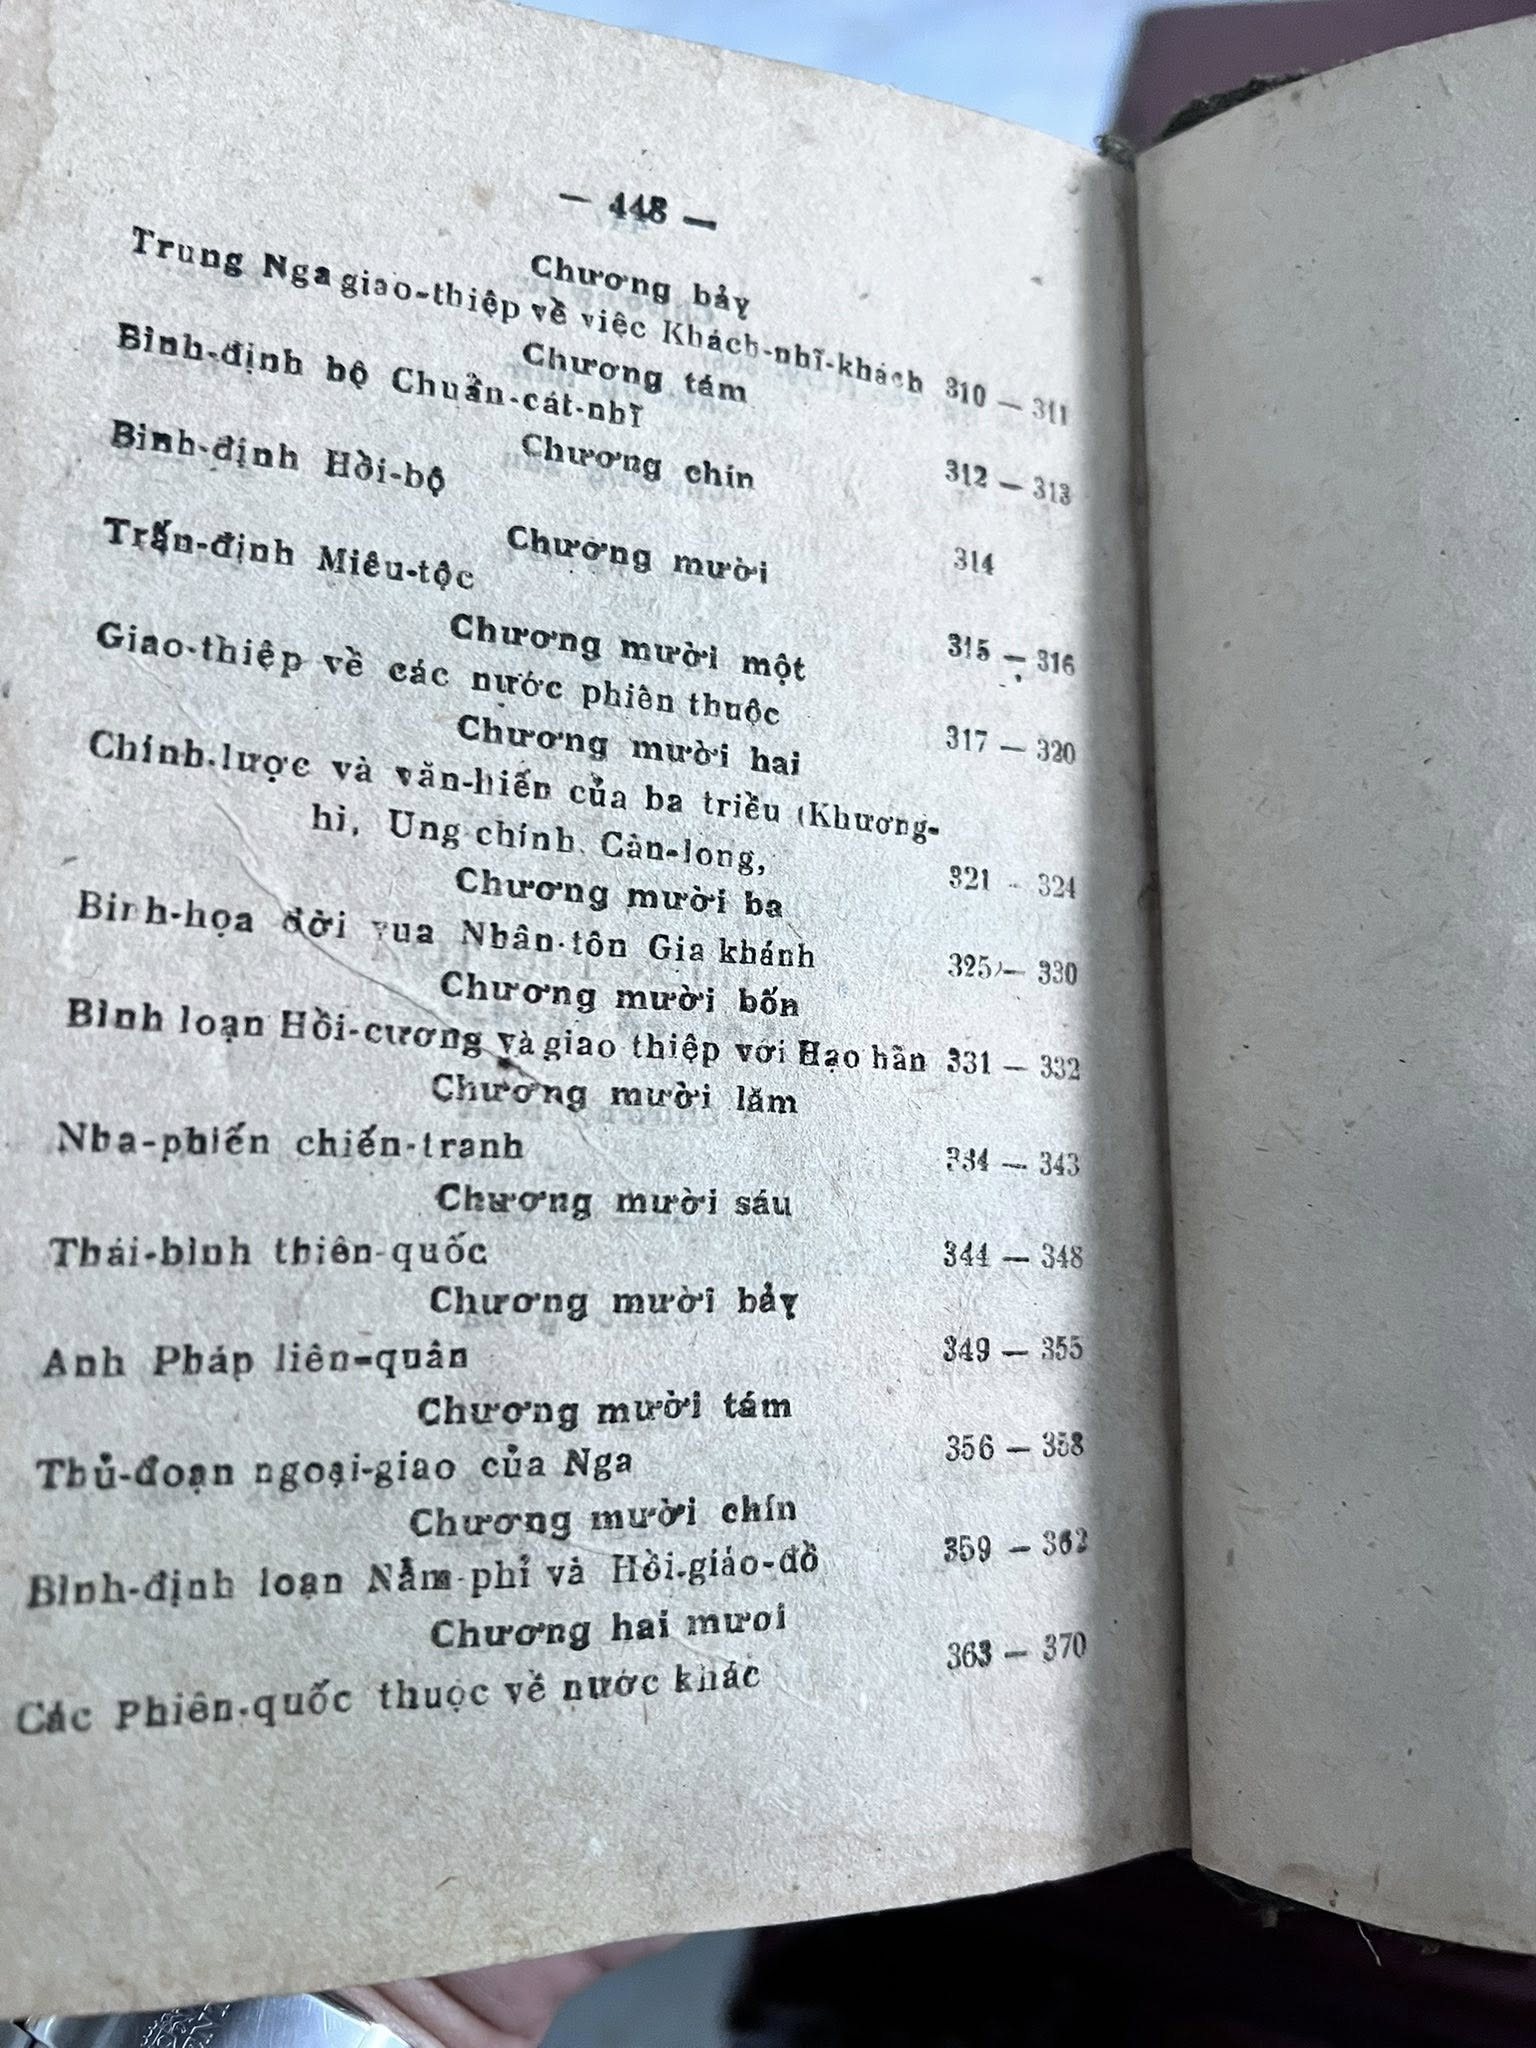 — 448 —
Chương bảy
Trung Nga giao-thiệp về việc Khách-nhĩ-khách 310 — 311
Chương tám
Bình-định bộ Chuẩn-cát-nhĩ 312 — 313
Chương chín
Bình-định Hồi-bộ 314
Chương mười
Trấn-định Miêu-tộc 315 — 316
Chương mười một
Giao-thiệp về các nước phiên thuộc 317 — 320
Chương mười hai
Chính-lược và văn-hiến của ba triều (Khương-
hi, Ung chính. Càn-long, 321 - 324
Chương mười ba
Binh-họa đời vua Nhân-tôn Gia khánh 325 — 330
Chương mười bốn
Bình loạn Hồi-cương và giao thiệp với Hạo hãn 331 — 332
Chương mười lăm
Nha-phiến chiến-tranh 334 — 343
Chương mười sáu
Thái-bình thiên-quốc 344 — 348
Chương mười bảy
Anh Pháp liên-quân 349 — 355
Chương mười tám
Thủ-đoạn ngoại-giao của Nga 356 — 358
Chương mười chín
Bình-định loạn Nẫm-phỉ và Hồi-giáo-đồ 359 — 362
Chương hai mươi
Các Phiên-quốc thuộc về nước khác 363 — 370